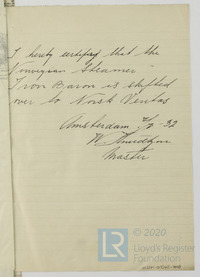 I hereby certified that the
Norwegian Steamer
"Iron Baron is shifted
over to Norsk Veritas
Amsterdam 2/2 -32
W.
Master
© 2020
Lloyd's Register
Foundation